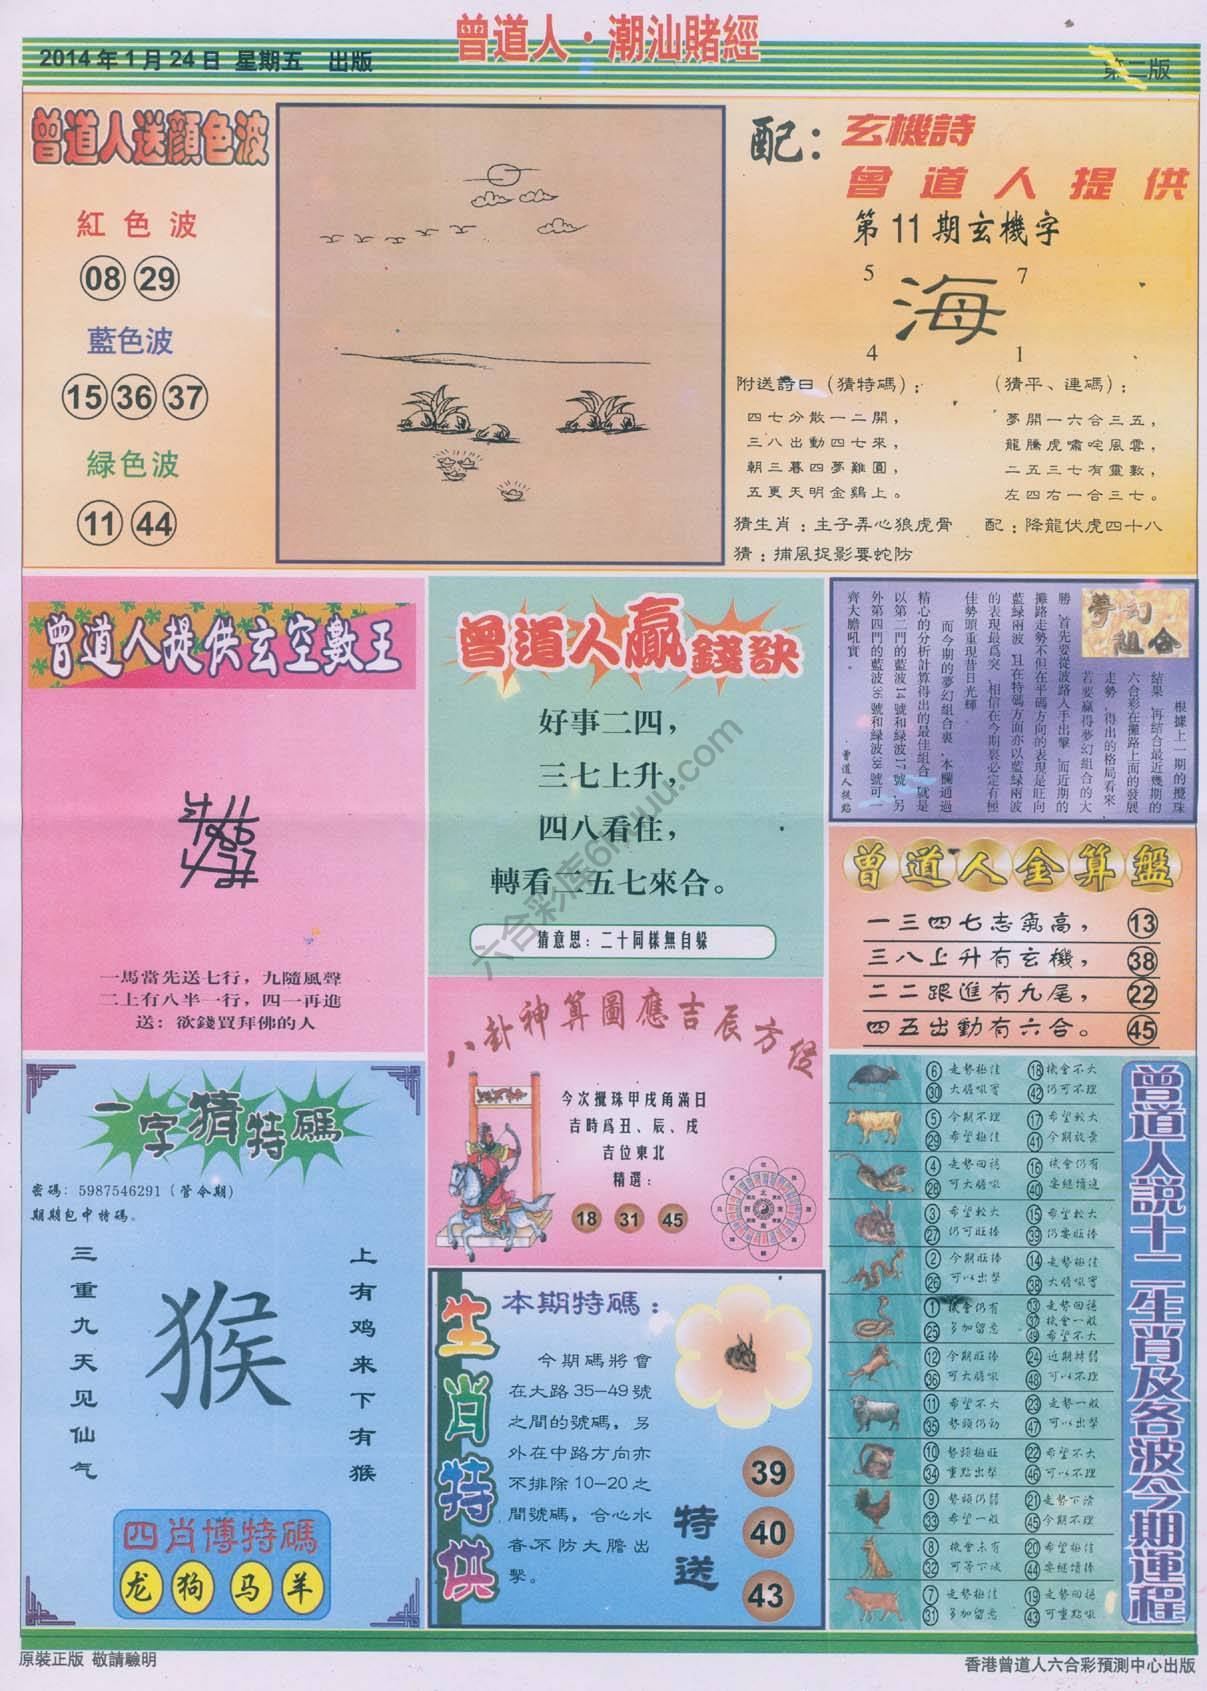 2014年1月24日 星期五 出版
曾道人·潮汕賭經
第二版
曾道人送顏色波
紅色波
08 29
藍色波
15 36 37
緑色波
11 44
配：
玄機詩
曾道人提供
第11期玄機字
5 7
海
4 1
附送詩曰（猜特碼）：
四七分散一二開，
三八出動四七來，
朝三暮四夢難圓，
五更天明金鷄上。
（猜平、連碼）：
夢開一六合三五，
龍騰虎嘯咤風雲，
二五三七有靈數，
左四右一合三七。
猜生肖：主子弄心狼虎骨
配：降龍伏虎四十八
猜：捕風捉影要蛇防
曾道人提供玄空數王
一馬當先送七行，九隨風聲
二上有八半一行，四一再進
送：欲錢買拜佛的人
曾道人贏錢訣
好事二四，
三七上升，
四八看住，
轉看二五七來合。
猜意思：二十同樣無自躲
六合彩库6huu.com
夢幻組合
根據上一期的攪珠
結果，再結合最近幾期的
六合彩在攤路上面的發展
走勢，得出的格局看來，
若要贏得夢幻組合的大
勝，首先要從波路入手出擊，而近期的
攤路走勢不但在半碼方向的表現是旺向
藍緑兩波，且在特碼方面亦以藍緑兩波
的表現最爲突，相信在今期裏必定有極
佳勢頭重現昔日光輝。
而今期的夢幻組合裏，本欄通過
精心的分析計算得出的最佳組合號是
以第二門的藍波14號和緑波17號，另
外第四門的藍波36號和緑波38號可
齊大膽吼實。
曾道人提點
曾道人金算盤
一三四七志氣高， 13
三八上升有玄機， 38
二二跟進有九尾， 22
四五出動有六合。 45
八卦神算圖應吉辰方位
今次攪珠甲戌角滿日
吉時爲丑、辰、戌
吉位東北
精選：
18 31 45
一字猜特碼
密碼：5987546291（管令期）
期期包中特碼。
三重九天见仙气
猴
上有鸡来下有猴
四肖博特碼
龙 狗 马 羊
生肖特供
本期特碼：
今期碼將會
在大路35—49號
之間的號碼，另
外在中路方向亦
不排除10—20之
間號碼，合心水
者不防大膽出
擊。
特送
39
40
43
曾道人説十二生肖及各波今期運程
6 走勢極佳 18 機會不大
30 大膽吼實 42 仍可不理
5 今期不理 17 希望較大
29 希望極佳 41 今期放棄
4 走勢回穩 16 機會仍有
28 可大膽吼 40 要繼續追
3 希望較大 15 希望較大
27 仍可旺捧 39 仍要旺捧
2 今期旺捧 14 走勢極佳
26 可以出擊 38 大膽吼實
1 機會仍有 13 走勢回穩
37 機會一般
25 多加留意 49 希望不大
12 今期旺捧 24 近期轉弱
36 可大膽吼 48 可以不理
11 希望不大 23 走勢一般
35 勢頭仍勁 47 可以出擊
10 勢頭極旺 22 希望不大
34 重點出擊 46 可以不理
9 勢頭仍弱 21 走勢下滑
33 希望一般 45 今期不理
8 機會未有 20 希望極佳
32 可等下次 44 要繼續捧
7 走勢極佳 19 走勢回穩
31 多加留意 43 可重點吼
原裝正版 敬請驗明
香港曾道人六合彩預測中心出版